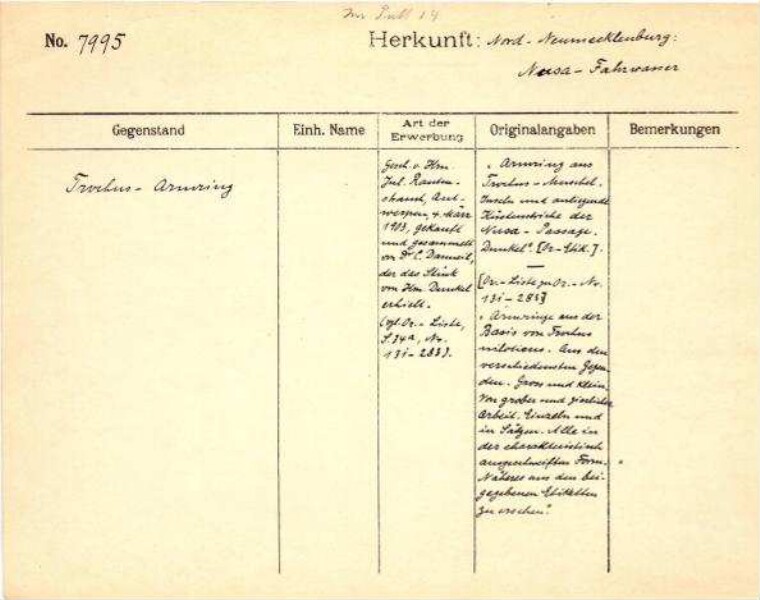 No. 7995
Herkunft: Nord-Neumecklenburg:
Nusa-Fahrwasser
Gegenstand
Einh. Name
Art der Erwerbung
Originalangaben
Bemerkungen
Trochus-Armring
Gesch. v. Hrn.
Jul. Rauten-
strauch, Ant-
werpen, 4. März
1913, gekauft
und gesammelt
von Dr. C. Danneil,
der das Stück
von Hrn. Dunkel
erhielt.
(vgl. Or.-Liste,
S. 34a, No.
131-283).
"Armring aus
Trochus-Muschel.
Inseln und anliegende
Küstenstriche der
Nusa-Passage.
Dunkel". [Or-Etik.].
[Or.-Liste zu Or.-No.
131-283]
"Armringe aus der
Basis von Trochus
niloticus. Aus den
verschiedensten Gegen-
den. Gross und klein.
Von grober und zierlicher
Arbeit. Einzeln und
in Sätzen. Alle in
der charakteristisch
ausgeschweiften Form.
Näheres aus den bei-
gegebenen Etiketten
zu ersehen".